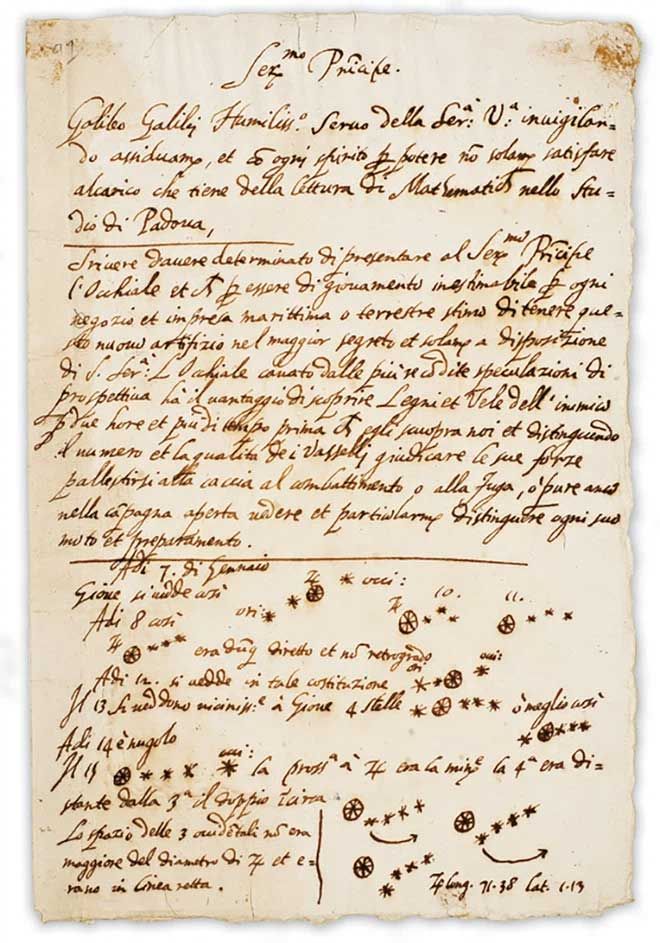 91
Ser.mo Prĩcipe.
Galileo Galilej Humiliss.o Servo della Ser.a V.a invigilan-
do assiduam.e, et cõ ogni spirito p̱ potere nõ solam.e satisfare
al carico che tiene della lettura di Mathematica nello stu-
dio di Padova,
Scrivere d'avere determinato di presentare al Ser.mo Prĩcipe
l'Occhiale et p̱ essere di giovamento inestimabile p̱ ogni
negozio et impresa marittima o terrestre stimo di tenere que-
sto nuovo artifizio nel maggior segreto et solam.e a disposizione
di S. Ser.a L'Occhiale cavato dalle più recõdite speculazioni di
prospettiva hà il vantaggio di scoprire Legni et Vele dell'inimico
p̱ due hore et più di tempo prima egli scuopra noi et distinguendo
il numero et la qualità de i Vasselli giudicare le sue forze
pallestirsi alla caccia al combattimento o alla fuga, ò pure anco
nella cãpagna aperta vedere et particolarm.e distinguere ogni suo
moto et preparamento.
Adi 7. di Gennaio
Giove si vedde così ♃ occi:
Adi 8 così ori: ♃ 10. 11.
♃ era dũq diretto et nõ retrogrado
Adi 12. si vedde in tale costituzione ori occi:
Il 13 si veddono viciniss.e à Giove 4 stelle ò meglio così
Adi 14 è nugolo
Il 15 occi: la pross.a à ♃ era la min.e la 4.a era di-
stante dalla 3.a il doppio ĩcirca
Lo spazio delle 3 occidẽtali nõ era
maggiore del diametro di ♃ et e-
rano in linea retta.
♃ long. 71.38 lat. 1.13